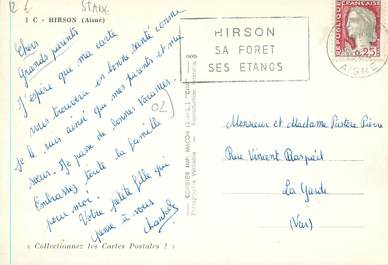 12 € STADE
1 C - HIRSON (Aisne)
Chers
Grands parents
J'espère que ma carte
vous trouvera en bonne santé comme
je le suis ainsi que mes parents et ma
sœur. Je passe de bonnes vacances.
Embrassez toute la famille
pour moi.
Votre petite fille qui
pense à vous
Chantal
02)
« Collectionnez les Cartes Postales ! »
COMBIER IMP. MACON
HIRSON
SA FORET
SES ETANGS
AISNE
REPUBLIQUE FRANÇAISE
0,25
Monsieur et Madame Pierre
Rue Vincent Raspail
La Garde
(Var)